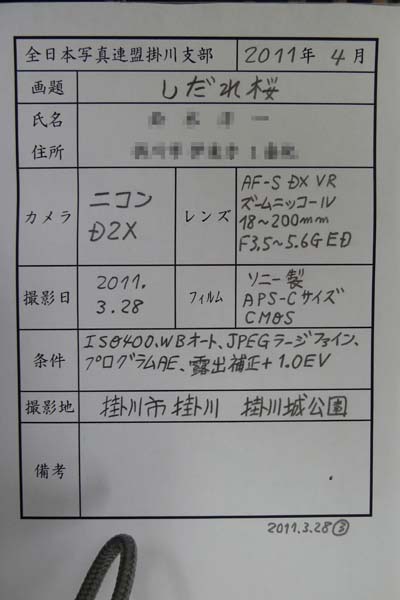 全日本写真連盟掛川支部 2011年 4月
画題 しだれ桜
氏名
住所
カメラ ニコン D2X
レンズ AF-S DX VR
ズームニッコール
18~200mm
F3.5~5.6G ED
撮影日 2011.
3.28
フィルム ソニー製
APS-Cサイズ
CMOS
条件 ISO400、WBオート、JPEGラージファイン、
プログラムAE、露出補正+1.0EV
撮影地 掛川市掛川 掛川城公園
備考
2011.3.28③